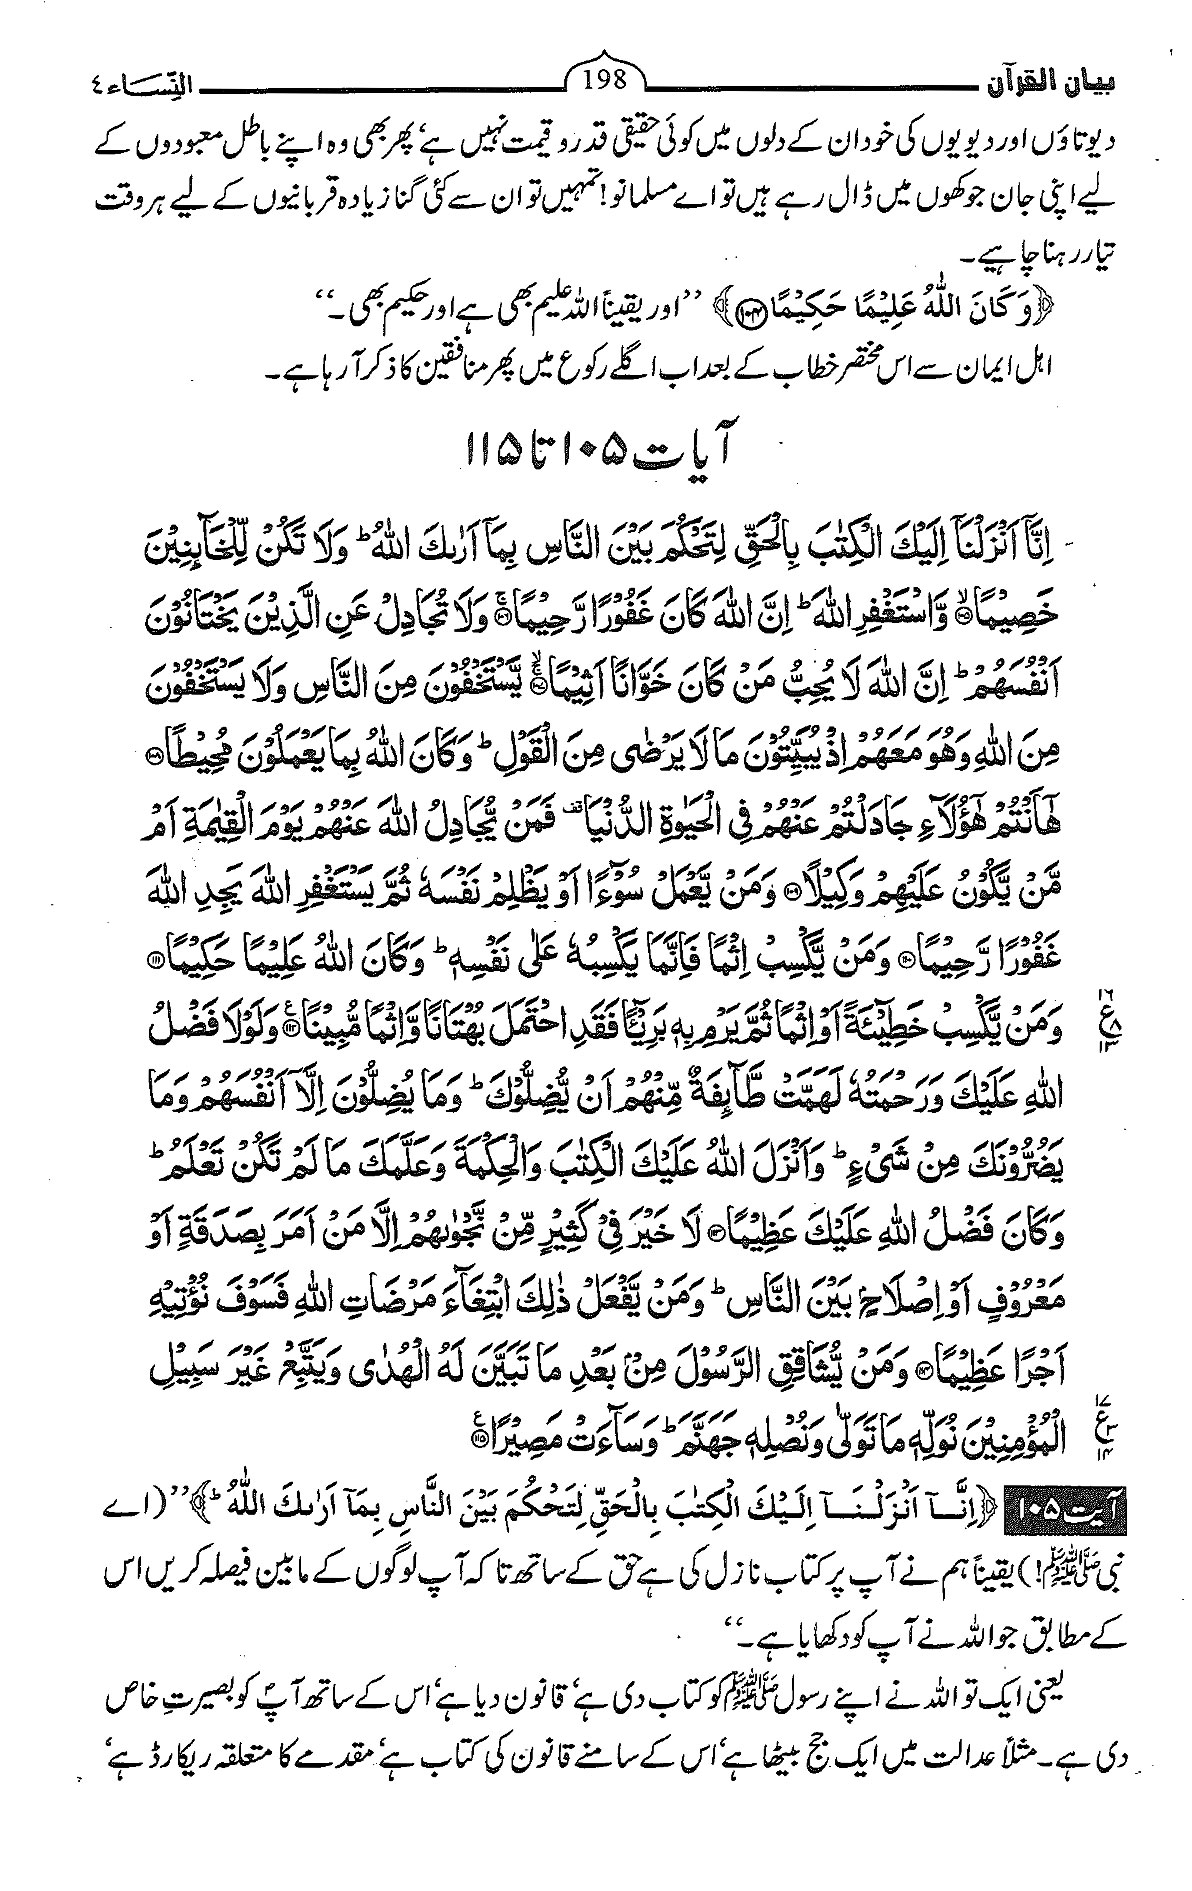 بیان القرآن 198 النِّسَاء ٤
دیوتاؤں اور دیویوں کی خود ان کے دلوں میں کوئی حقیقی قدر و قیمت نہیں ہے‘ پھر بھی وہ اپنے باطل معبودوں کے
لیے اپنی جان جوکھوں میں ڈال رہے ہیں تو اے مسلمانو! تمہیں تو ان سے کئی گنا زیادہ قربانیوں کے لیے ہر وقت
تیار رہنا چاہیے۔
﴿وَكَانَ اللّٰهُ عَلِيْمًا حَكِيْمًا ۝۱۰۴﴾ ’’اور یقیناً اللہ علیم بھی ہے اور حکیم بھی۔‘‘
اہل ایمان سے اس مختصر خطاب کے بعد اب اگلے رکوع میں پھر منافقین کا ذکر آ رہا ہے۔
آیات ۱۰۵ تا ۱۱۵
اِنَّاۤ اَنْزَلْنَاۤ اِلَيْكَ الْكِتٰبَ بِالْحَقِّ لِتَحْكُمَ بَيْنَ النَّاسِ بِمَاۤ اَرٰىكَ اللّٰهُ ؕ وَلَا تَكُنْ لِّلْخَآىِٕنِيْنَ
خَصِيْمًا ۝۱۰۵ۙ وَّاسْتَغْفِرِ اللّٰهَ ؕ اِنَّ اللّٰهَ كَانَ غَفُوْرًا رَّحِيْمًا ۝۱۰۶ۚ وَلَا تُجَادِلْ عَنِ الَّذِيْنَ يَخْتَانُوْنَ
اَنْفُسَهُمْ ؕ اِنَّ اللّٰهَ لَا يُحِبُّ مَنْ كَانَ خَوَّانًا اَثِيْمًا ۝۱۰۷ۚۙ يَّسْتَخْفُوْنَ مِنَ النَّاسِ وَلَا يَسْتَخْفُوْنَ
مِنَ اللّٰهِ وَهُوَ مَعَهُمْ اِذْ يُبَيِّتُوْنَ مَا لَا يَرْضٰى مِنَ الْقَوْلِ ؕ وَكَانَ اللّٰهُ بِمَا يَعْمَلُوْنَ مُحِيْطًا ۝۱۰۸
هٰۤاَنْتُمْ هٰۤؤُلَآءِ جَادَلْتُمْ عَنْهُمْ فِي الْحَيٰوةِ الدُّنْيَا ۟ فَمَنْ يُّجَادِلُ اللّٰهَ عَنْهُمْ يَوْمَ الْقِيٰمَةِ اَمْ
مَّنْ يَّكُوْنُ عَلَيْهِمْ وَكِيْلًا ۝۱۰۹ وَمَنْ يَّعْمَلْ سُوْٓءًا اَوْ يَظْلِمْ نَفْسَهٗ ثُمَّ يَسْتَغْفِرِ اللّٰهَ يَجِدِ اللّٰهَ
غَفُوْرًا رَّحِيْمًا ۝۱۱۰ وَمَنْ يَّكْسِبْ اِثْمًا فَاِنَّمَا يَكْسِبُهٗ عَلٰى نَفْسِهٖ ؕ وَكَانَ اللّٰهُ عَلِيْمًا حَكِيْمًا ۝۱۱۱
وَمَنْ يَّكْسِبْ خَطِيْٓئَةً اَوْ اِثْمًا ثُمَّ يَرْمِ بِهٖ بَرِيْٓـًٔا فَقَدِ احْتَمَلَ بُهْتَانًا وَّاِثْمًا مُّبِيْنًا ۝۱۱۲ۧ وَلَوْلَا فَضْلُ
۱۶ ع ۸ ۱۳
اللّٰهِ عَلَيْكَ وَرَحْمَتُهٗ لَهَمَّتْ طَّآىِٕفَةٌ مِّنْهُمْ اَنْ يُّضِلُّوْكَ ؕ وَمَا يُضِلُّوْنَ اِلَّاۤ اَنْفُسَهُمْ وَمَا
يَضُرُّوْنَكَ مِنْ شَيْءٍ ؕ وَاَنْزَلَ اللّٰهُ عَلَيْكَ الْكِتٰبَ وَالْحِكْمَةَ وَعَلَّمَكَ مَا لَمْ تَكُنْ تَعْلَمُ ؕ
وَكَانَ فَضْلُ اللّٰهِ عَلَيْكَ عَظِيْمًا ۝۱۱۳ لَا خَيْرَ فِيْ كَثِيْرٍ مِّنْ نَّجْوٰىهُمْ اِلَّا مَنْ اَمَرَ بِصَدَقَةٍ اَوْ
مَعْرُوْفٍ اَوْ اِصْلَاحٍۭ بَيْنَ النَّاسِ ؕ وَمَنْ يَّفْعَلْ ذٰلِكَ ابْتِغَآءَ مَرْضَاتِ اللّٰهِ فَسَوْفَ نُؤْتِيْهِ
اَجْرًا عَظِيْمًا ۝۱۱۴ وَمَنْ يُّشَاقِقِ الرَّسُوْلَ مِنْۢ بَعْدِ مَا تَبَيَّنَ لَهُ الْهُدٰى وَيَتَّبِعْ غَيْرَ سَبِيْلِ
الْمُؤْمِنِيْنَ نُوَلِّهٖ مَا تَوَلّٰى وَنُصْلِهٖ جَهَنَّمَ ؕ وَسَآءَتْ مَصِيْرًا ۝۱۱۵ۧ
۱۷ ع ۳ ۱۴
آیت ۱۰۵ ﴿اِنَّاۤ اَنْزَلْنَاۤ اِلَيْكَ الْكِتٰبَ بِالْحَقِّ لِتَحْكُمَ بَيْنَ النَّاسِ بِمَاۤ اَرٰىكَ اللّٰهُ ؕ﴾ ’’(اے
نبی ﷺ!) یقیناً ہم نے آپ پر کتاب نازل کی ہے حق کے ساتھ تاکہ آپ لوگوں کے مابین فیصلہ کریں اس
کے مطابق جو اللہ نے آپ کو دکھایا ہے۔‘‘
یعنی ایک تو اللہ نے اپنے رسول ﷺ کو کتاب دی ہے‘ قانون دیا ہے‘ اس کے ساتھ آپؐ کو بصیرتِ خاص
دی ہے۔ مثلاً عدالت میں ایک جج بیٹھا ہے‘ اس کے سامنے قانون کی کتاب ہے‘ مقدمے کا متعلقہ ریکارڈ ہے‘